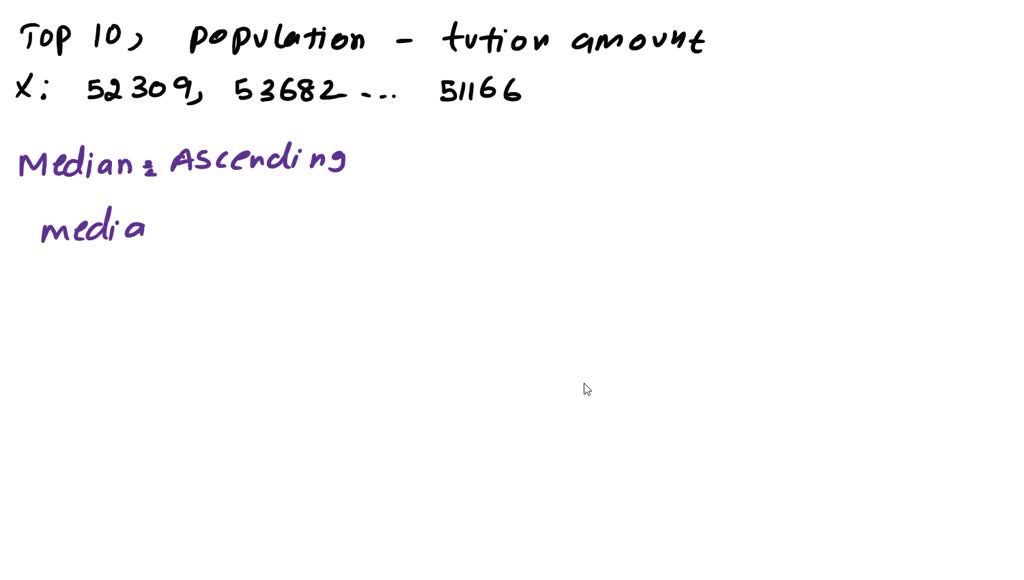 Top 10, population - tution amount
X: 52309, 53682 ... 51166
Median = Ascending
media